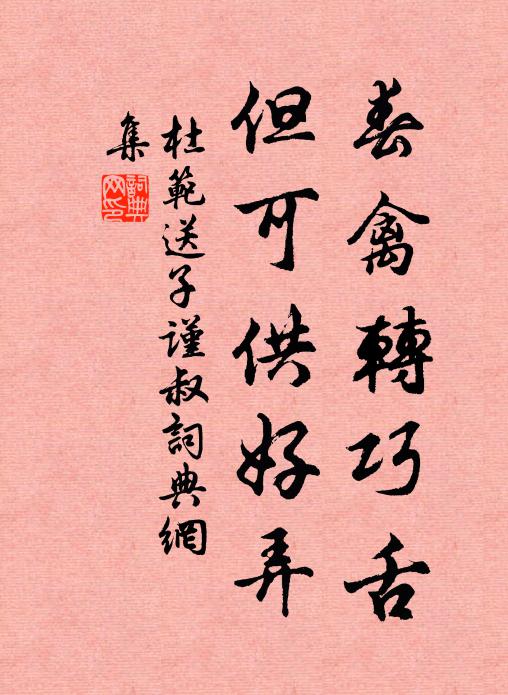 春禽轉巧舌
但可供好弄
杜範送子謹叔詞典網
集
詞典
网印